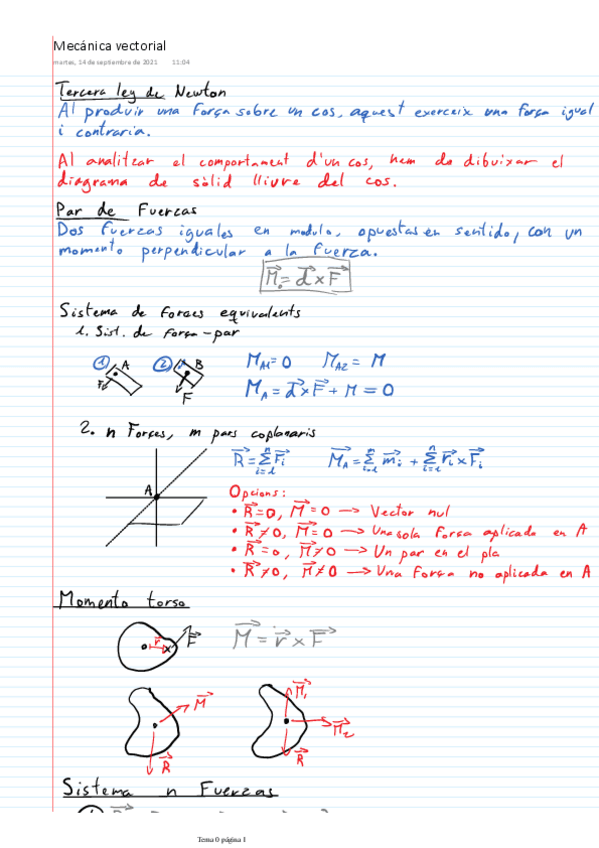 Mecánica vectorial
martes, 14 de septiembre de 2021 11:04
Tercera ley de Newton
Al produir una força sobre un cos, aquest exerceix una força igual
i contraria.
Al analitzar el comportament d'un cos, hem de dibuixar el
diagrama de sòlid lliure del cos.
Par de Fuerzas
Dos fuerzas iguales en modulo, opuestas en sentido, con un
momento perpendicular a la fuerza.
M⃗₀ = d⃗ x F⃗
Sistema de forces equivalents
1. Sist. de força-par
① A ② B F F
M⃗A1 = 0 M⃗A2 = M
M⃗A = d⃗ x F⃗ + M = 0
2. n Forçes, m pars coplanaris
R⃗ = Σⁿᵢ₌₁ F⃗ᵢ M⃗A = Σⁿᵢ₌₁ m⃗ᵢ + Σⁿᵢ₌₁ r⃗ᵢ x F⃗ᵢ
A
Opcions:
• R⃗ = 0, M⃗ = 0 → Vector nul
• R⃗ ≠ 0, M⃗ = 0 → Una sola força aplicada en A
• R⃗ = 0, M⃗ ≠ 0 → Un par en el pla
• R⃗ ≠ 0, M⃗ ≠ 0 → Una força no aplicada en A
Momento torso
r⃗ F⃗ M⃗ = r⃗ x F⃗
M⃗ R⃗ M⃗₁ M⃗₂ R⃗
Sistema n Fuerzas
Tema 0 página 1